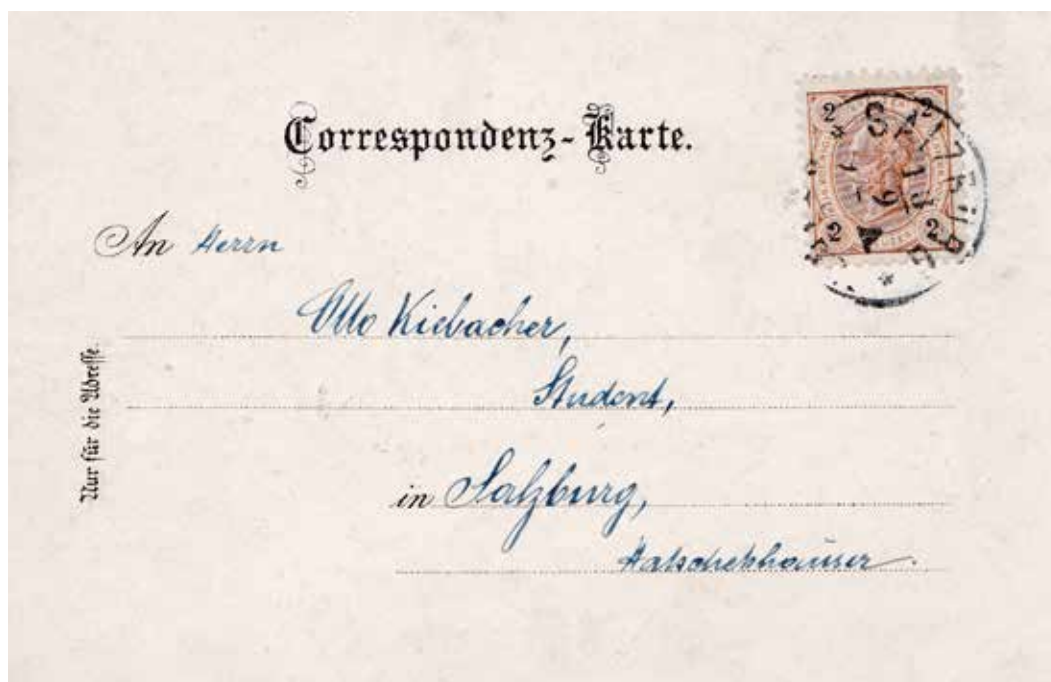 Correspondenz-Karte.
2 2
SALZBURG
2 2
An Herrn
Otto Kiebacher,
Student,
in Salzburg,
Hatschekhäuser.
Nur für die Adresse.